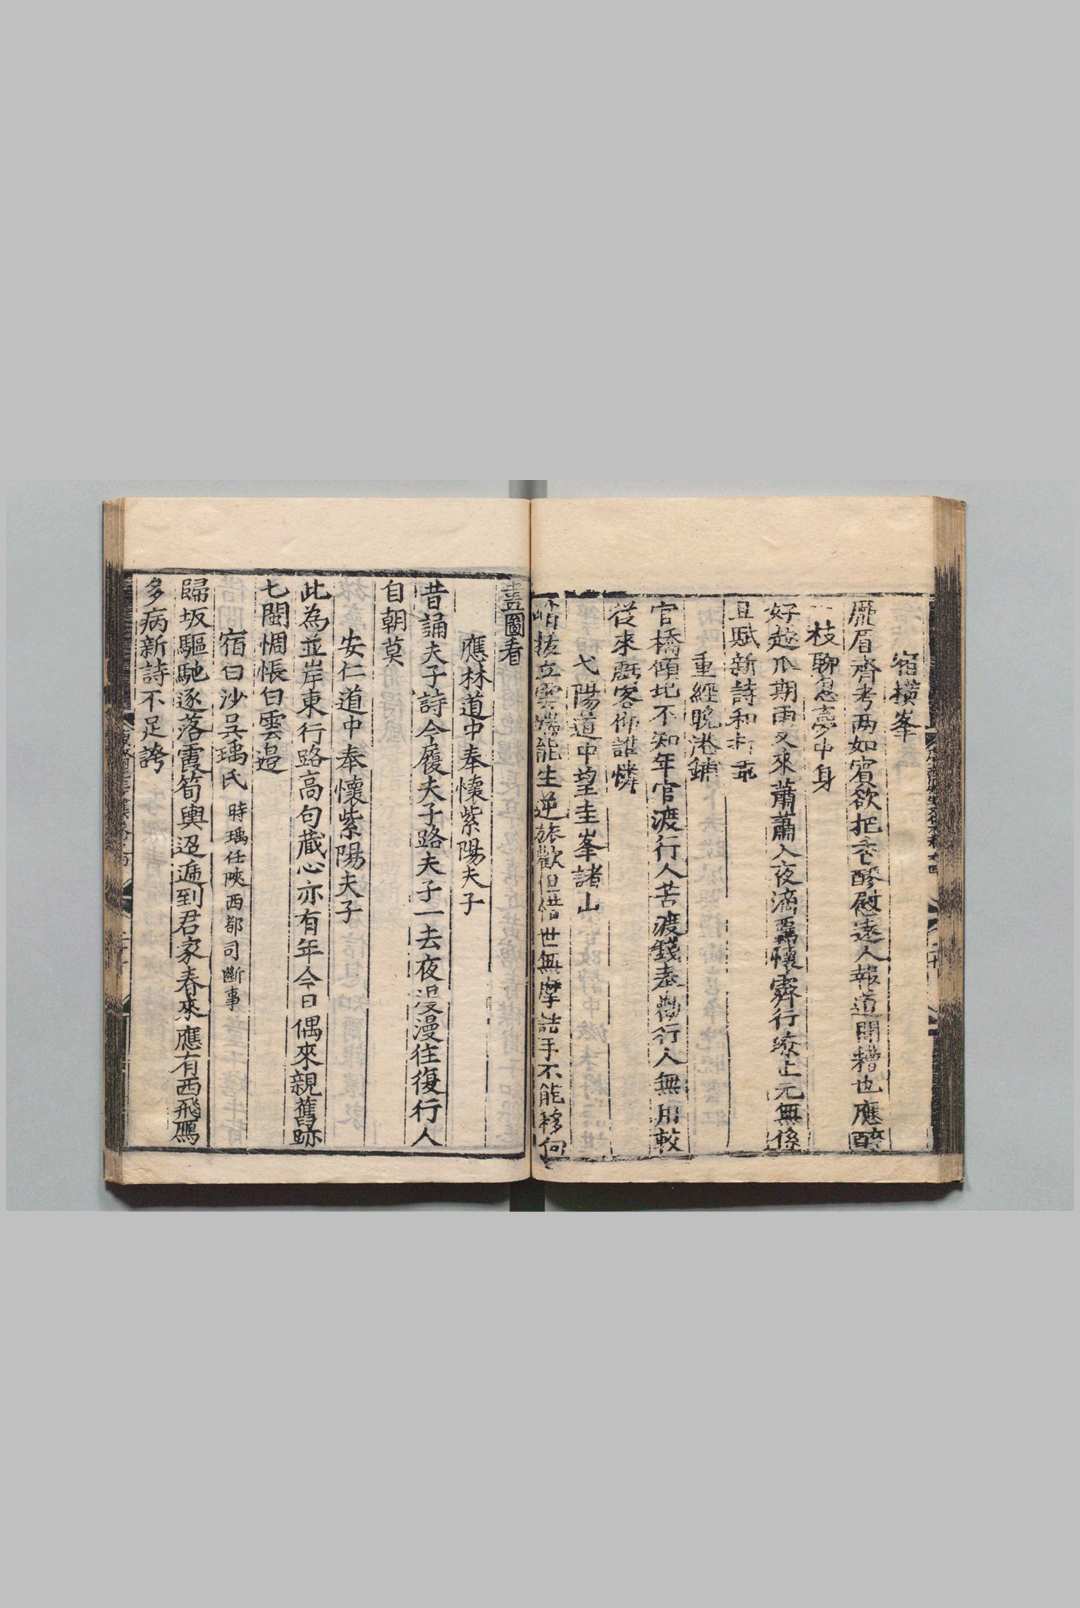 宿橫峯
龐眉齊考两如賓欲把衣醪慰遠人報道開樽也應醉
一枝聊憩客中身
好趂瓜期雨又來蕭蕭入夜滴羈懷霽行潦止元無係
且賦新詩和
重經晚港鋪
官橋傾圮不知年官渡行人苦渡錢奉勸行人無用較
從來羇客仰誰憐
弋陽道中望圭峯諸山
峭拔立雲端能生逆旅歡但借世無摩詰手不能移向
畫圖看
應林道中奉懷紫陽夫子
昔誦夫子詩今履夫子路夫子一去夜漫漫往復行人
自朝莫
安仁道中奉懷紫陽夫子
此為並岸東行路高句蔵心亦有年今日偶來親舊跡
七閩惆悵白雲邉
宿白沙吳瑀氏 時瑀任陜西都司斷事
歸坂驅馳逐落霞筍輿迢逓到君家春來應有西飛鴈
多病新詩不足誇